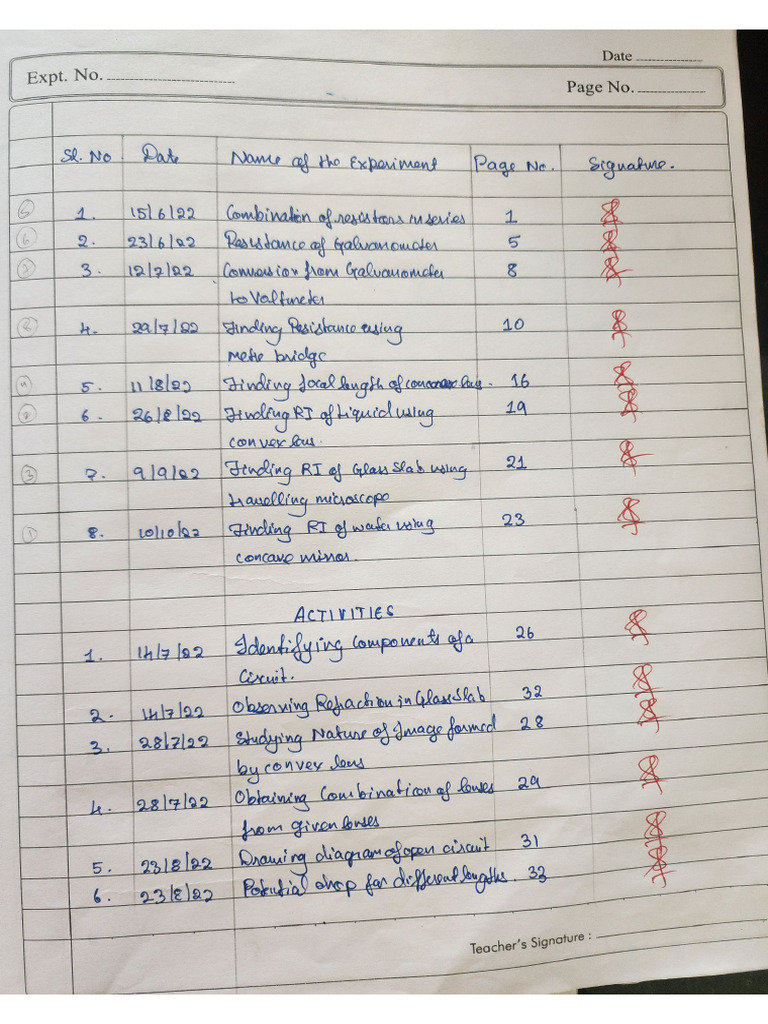 Date
Expt. No.
Page No.
Sl. No Date Name of the Experiment Page No. Signature.
5 1. 15/6/22 Combination of resistors in series 1
6 2. 23/6/22 Resistance of Galvanometer 5
7 3. 12/7/22 Conversion from Galvanometer 8
to Voltmeter
8 4. 29/7/22 Finding Resistance using 10
metre bridge
5. 11/8/22 Finding focal length of lens. 16
2 6. 26/8/22 Finding RI of Liquid using 19
convex lens.
3 7. 9/9/22 Finding RI of Glass Slab using 21
travelling microscope
1 8. 10/10/22 Finding RI of water using 23
concave mirror.
ACTIVITIES
1. 14/7/22 Identifying Components of a 26
Circuit.
2. 14/7/22 Observing Refraction in Glass Slab 32
3. 28/7/22 Studying Nature of Image formed 28
by convex lens
4. 28/7/22 Obtaining Combination of lenses 29
from given lenses
5. 23/8/22 Drawing diagram of open circuit 31
6. 23/8/22 Potential drop for different lengths. 33
Teacher's Signature :